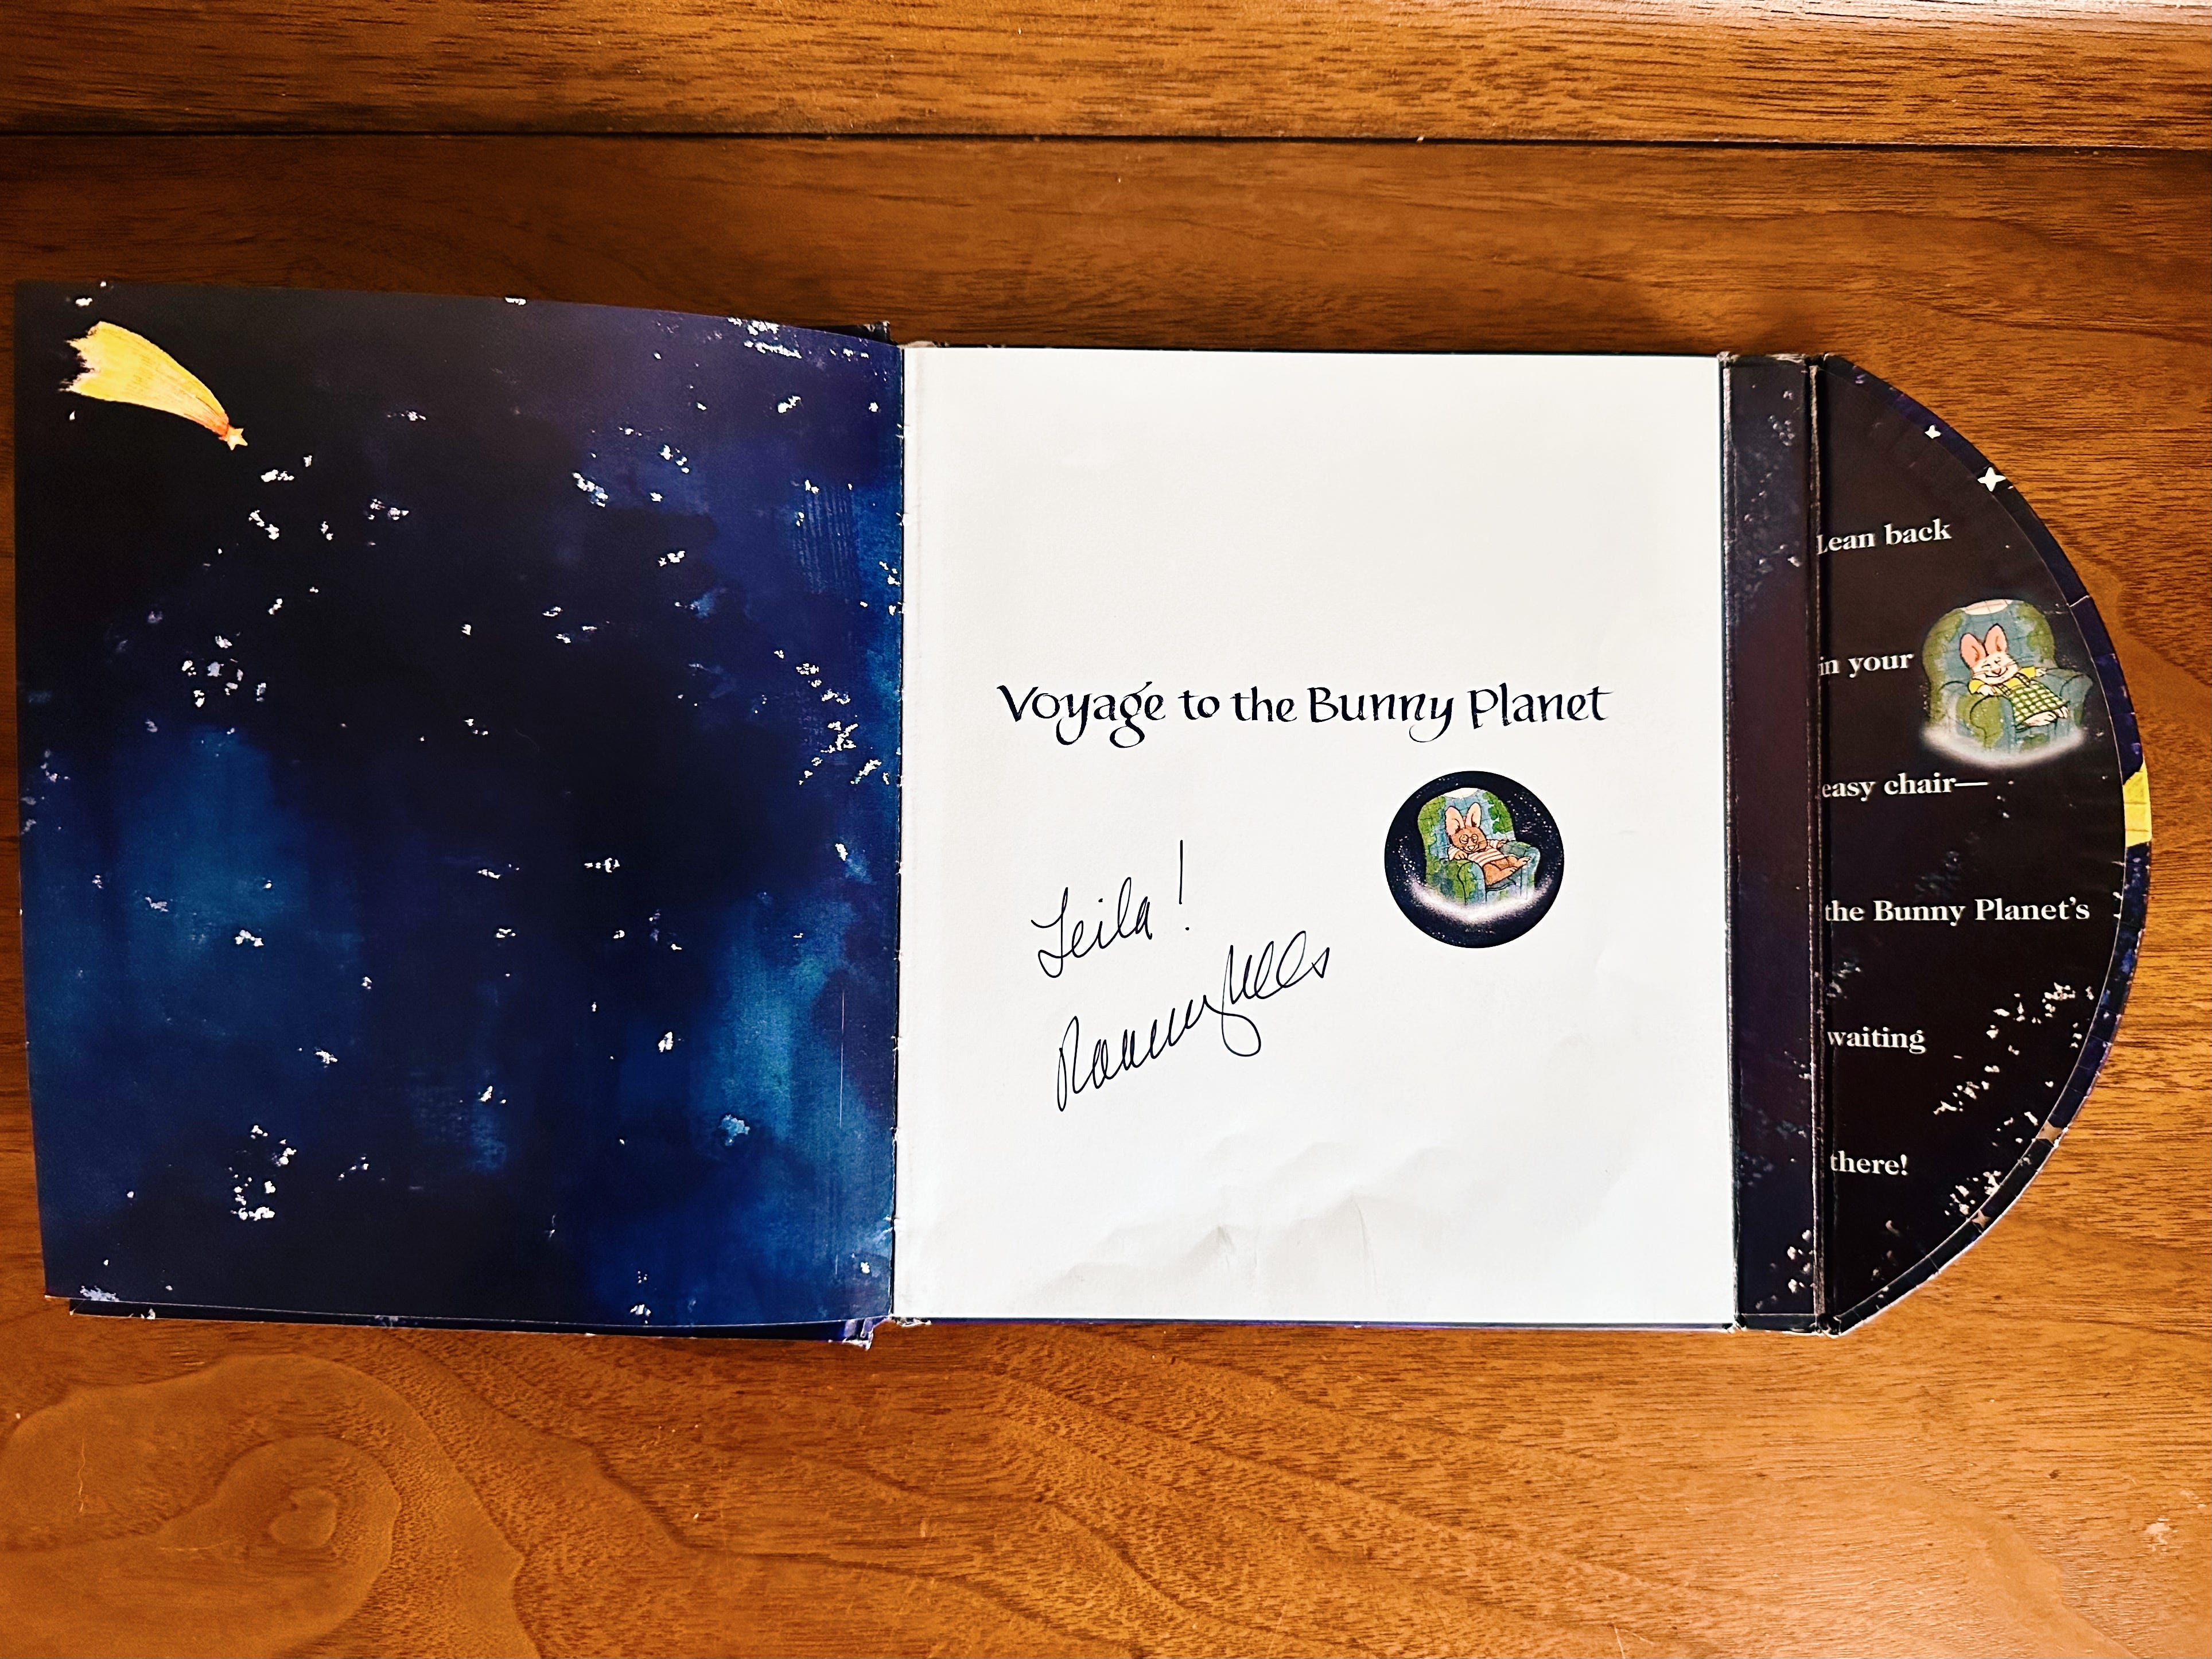 Voyage to the Bunny Planet
Leila!
Rosemary Wells
Lean back
in your
easy chair—
the Bunny Planet's
waiting
there!